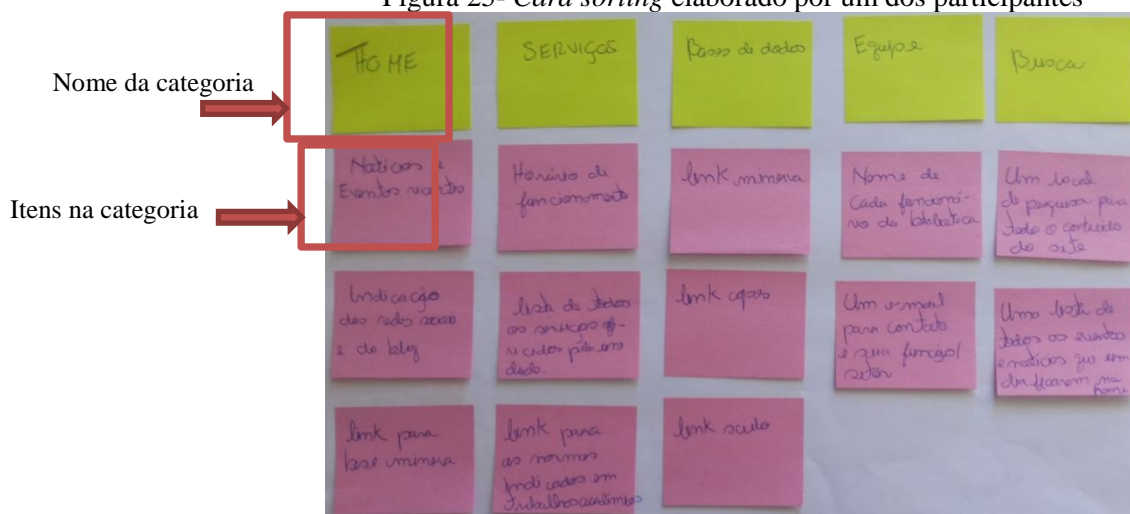 Figura 25- Card sorting elaborado por um dos participantes
Nome da categoria
Itens na categoria
HOME
SERVIÇOS
Bases de dados
Equipe
Busca
Noticias e
Eventos recentes
Horário de
funcionamento
link minerva
Nome de
cada funcioná-
rio da biblioteca
Um local
de pesquisa para
todo o conteúdo
do site
Indicação
das redes sociais
e do blog
lista de todos
os serviços ofe-
recidos pela uni
dade.
link capes
Um e-mail
para contato
e sua função/
setor
Uma lista de
todos os eventos
e notícias que
ficarem na
home
link para
base minerva
link para
as normas
indicadas em
trabalhos acadêmicos
link scielo